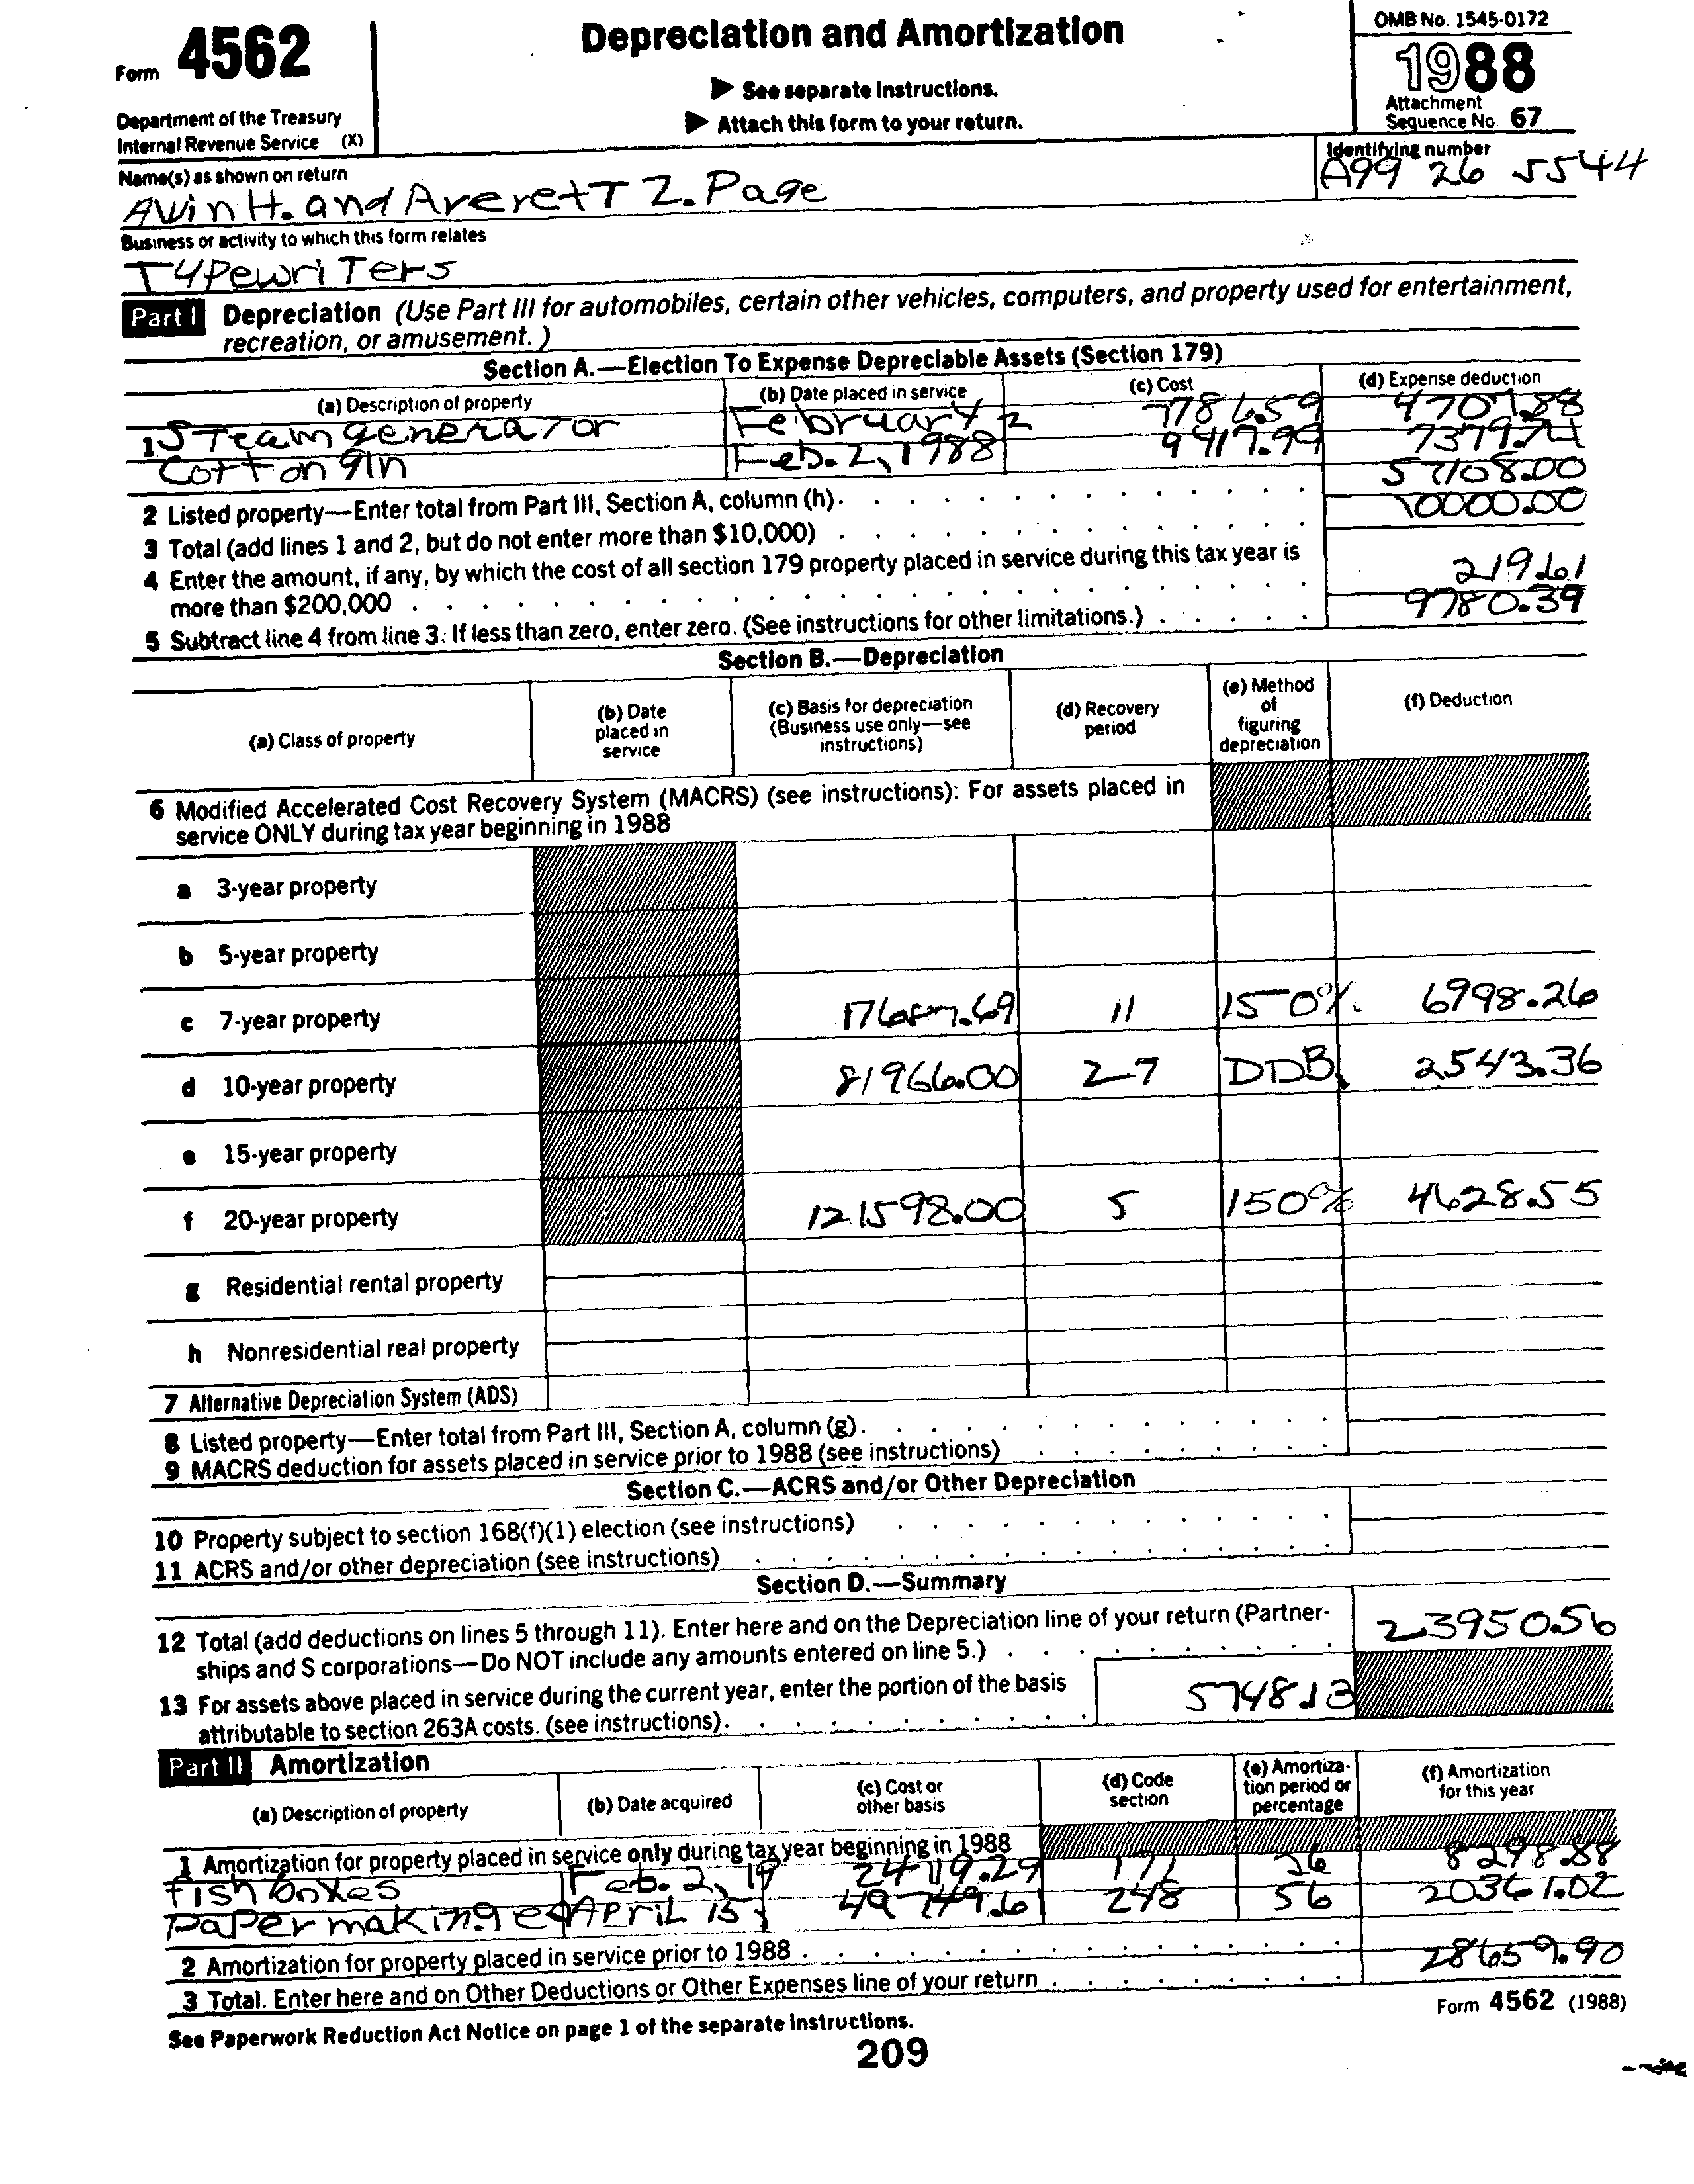 Form 4562
Department of the Treasury
Internal Revenue Service (X)
Depreciation and Amortization
▶ See separate Instructions.
▶ Attach this form to your return.
OMB No. 1545-0172
1988
Attachment
Sequence No. 67
Name(s) as shown on return
Identifying number
AVin H. and Averett Z. Page
A99 26 5544
Business or activity to which this form relates
TYPewriTers
Part I Depreciation (Use Part III for automobiles, certain other vehicles, computers, and property used for entertainment,
recreation, or amusement.)
Section A.—Election To Expense Depreciable Assets (Section 179)
(a) Description of property (b) Date placed in service (c) Cost (d) Expense deduction
1 STeam generaTor February 2 7786.59 4707.88
Cotton gin Feb. 2, 1988 9417.99 7379.74
2 Listed property—Enter total from Part III, Section A, column (h). 57108.00
3 Total (add lines 1 and 2, but do not enter more than $10,000) 10000.00
4 Enter the amount, if any, by which the cost of all section 179 property placed in service during this tax year is
more than $200,000 219.61
5 Subtract line 4 from line 3. If less than zero, enter zero. (See instructions for other limitations.) 9780.39
Section B.—Depreciation
(a) Class of property
(b) Date
placed in
service
(c) Basis for depreciation
(Business use only—see
instructions)
(d) Recovery
period
(e) Method
of
figuring
depreciation
(f) Deduction
6 Modified Accelerated Cost Recovery System (MACRS) (see instructions): For assets placed in
service ONLY during tax year beginning in 1988
a 3-year property
b 5-year property
c 7-year property 17687.69 11 150% 6998.26
d 10-year property 81966.00 27 DDB 2543.36
e 15-year property
f 20-year property 121598.00 5 150% 4628.55
g Residential rental property
h Nonresidential real property
7 Alternative Depreciation System (ADS)
8 Listed property—Enter total from Part III, Section A, column (g).
9 MACRS deduction for assets placed in service prior to 1988 (see instructions)
Section C.—ACRS and/or Other Depreciation
10 Property subject to section 168(f)(1) election (see instructions)
11 ACRS and/or other depreciation (see instructions)
Section D.—Summary
12 Total (add deductions on lines 5 through 11). Enter here and on the Depreciation line of your return (Partner-
ships and S corporations—Do NOT include any amounts entered on line 5.) 23950.56
13 For assets above placed in service during the current year, enter the portion of the basis
attributable to section 263A costs. (see instructions). 5748.13
Part II Amortization
(a) Description of property
(b) Date acquired
(c) Cost or
other basis
(d) Code
section
(e) Amortiza-
tion period or
percentage
(f) Amortization
for this year
1 Amortization for property placed in service only during tax year beginning in 1988
fish boxes Feb. 2, 19 24119.29 171 26 8298.88
Paper making e April 15, 49749.61 248 56 20361.02
2 Amortization for property placed in service prior to 1988
3 Total. Enter here and on Other Deductions or Other Expenses line of your return 28659.90
See Paperwork Reduction Act Notice on page 1 of the separate Instructions.
Form 4562 (1988)
209